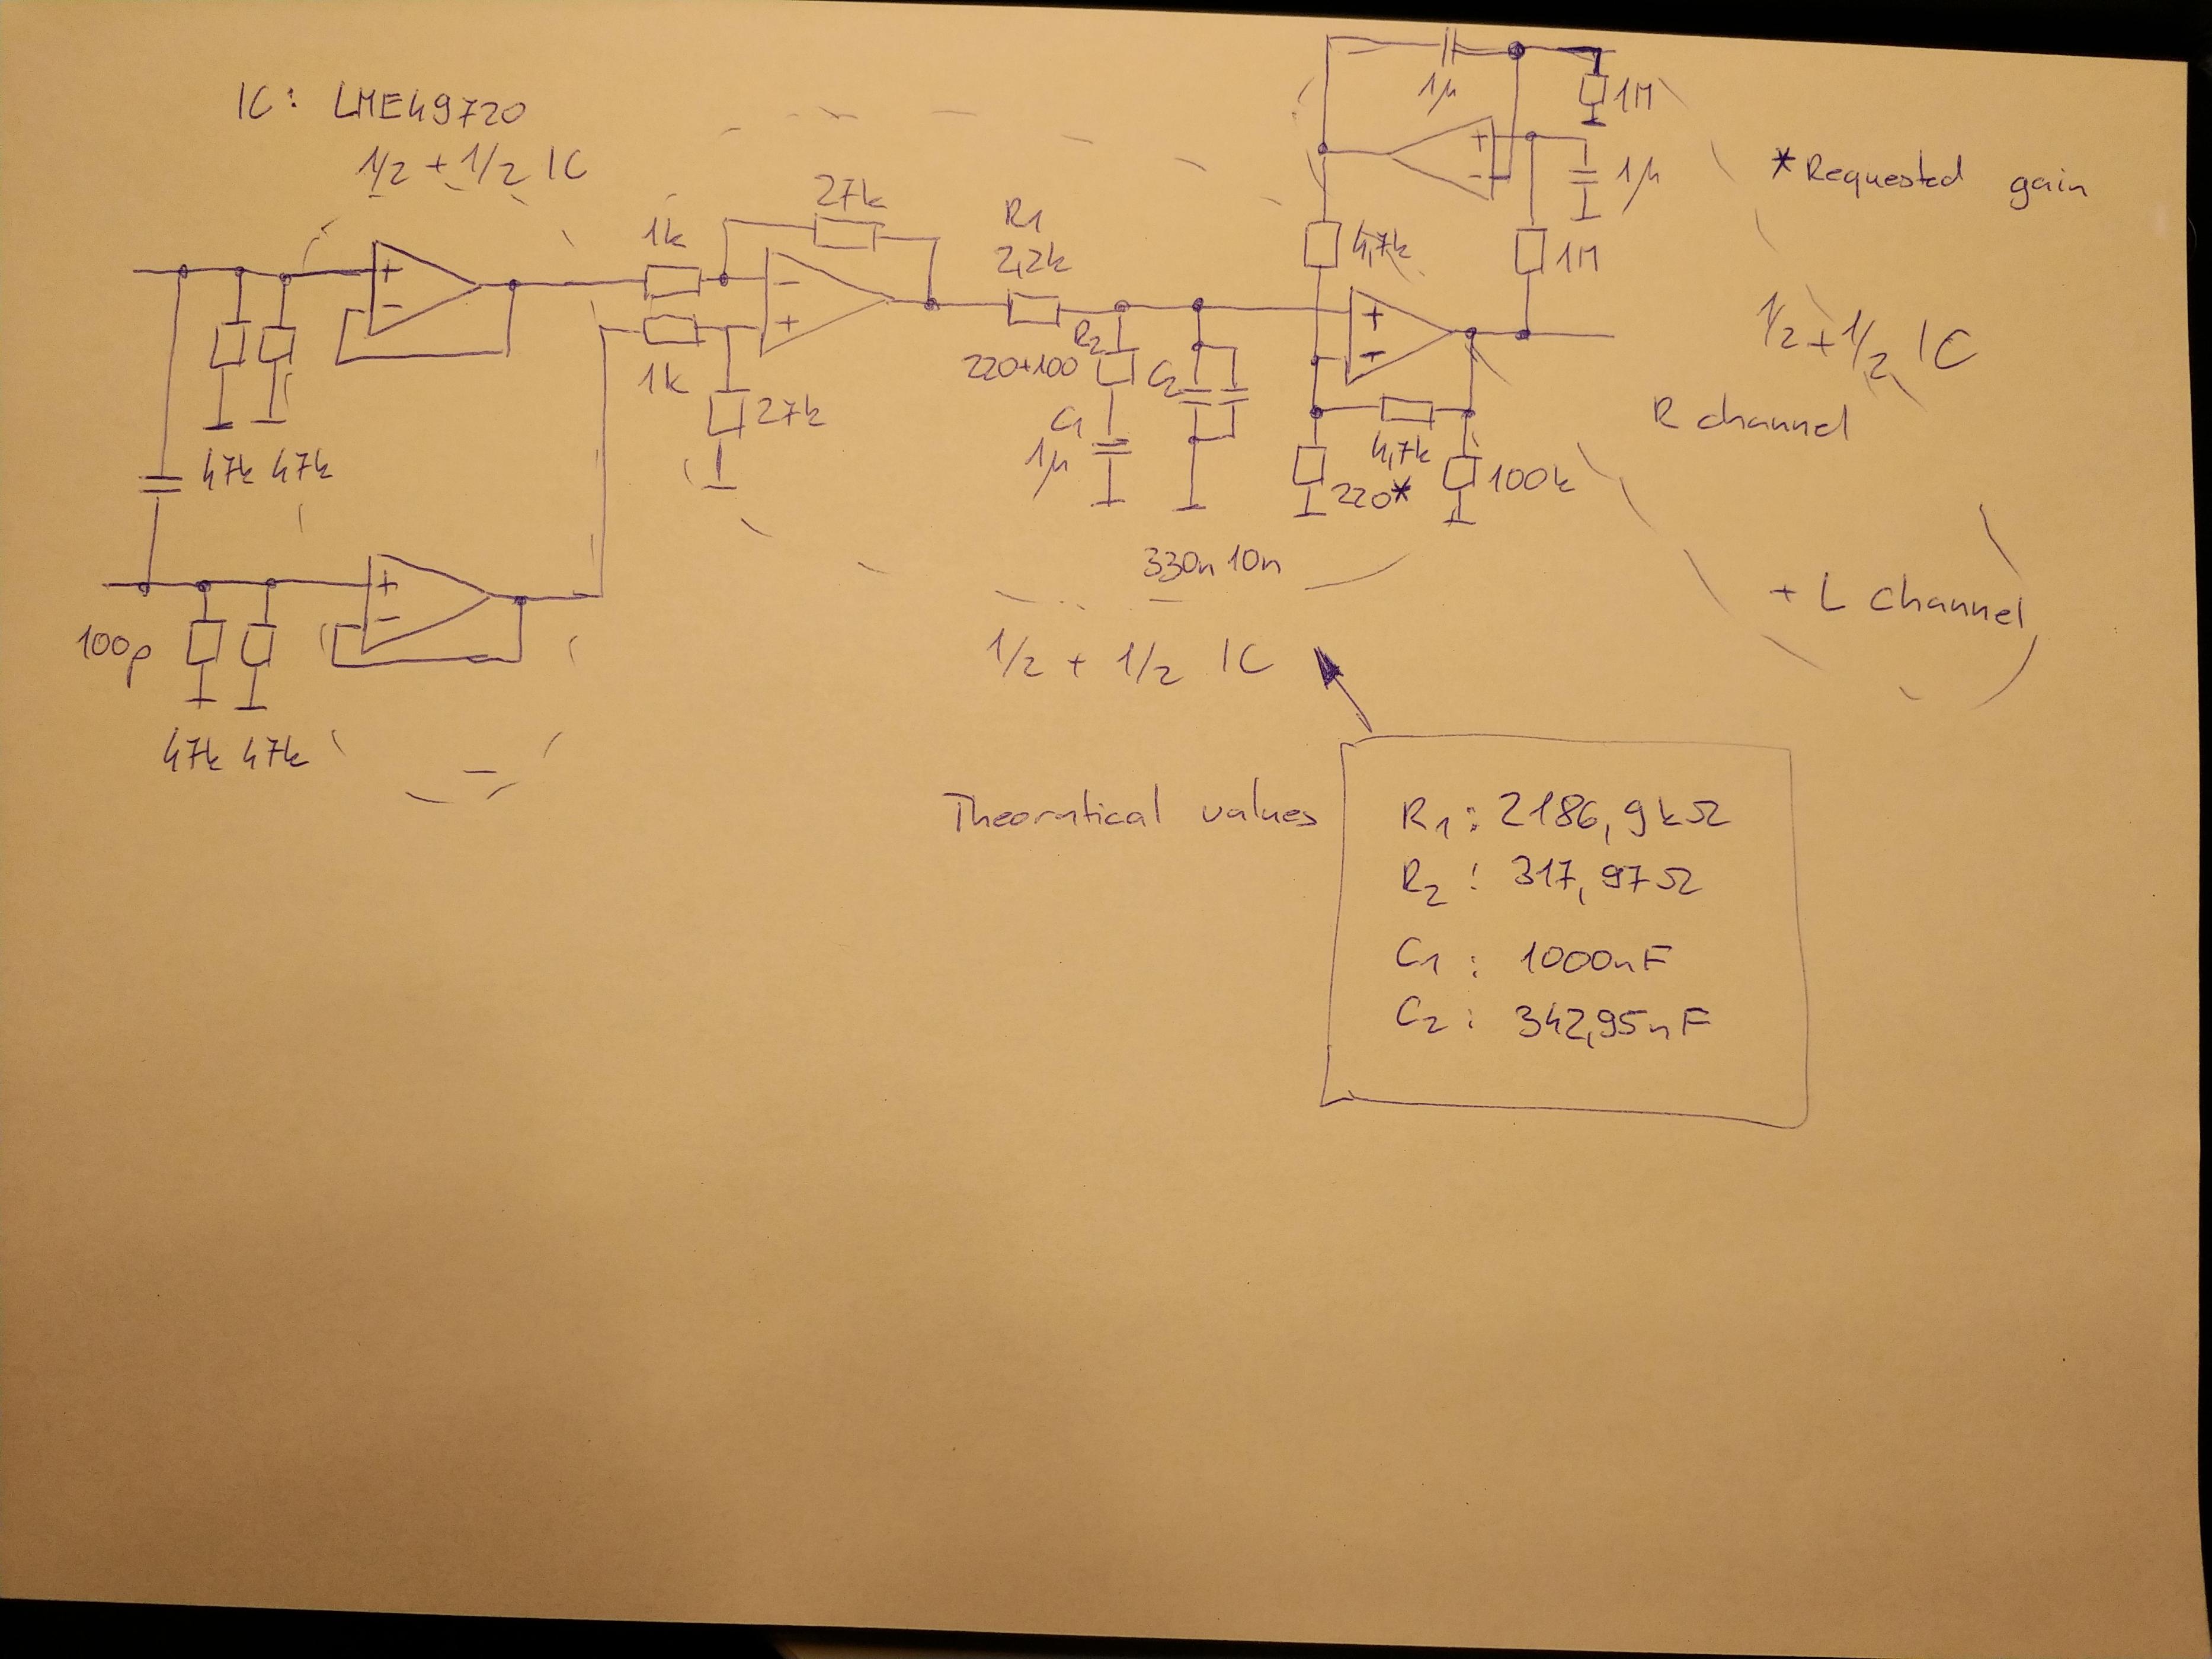 IC: LME49720
1/2 + 1/2 IC
1µ
1M
+
-
1µ
*Requested gain
4,7k
1M
27k
1k
R1
2,2k
+
-
-
+
1k
27k
R2
220+100
C2
C1
1µ
+
-
1/2 + 1/2 IC
R channel
4,7k
220*
100k
47k 47k
330n 10n
+
-
100p
47k 47k
1/2 + 1/2 IC
+ L channel
Theoratical values
R1: 2186,9kΩ
R2: 317,97Ω
C1: 1000nF
C2: 342,95nF